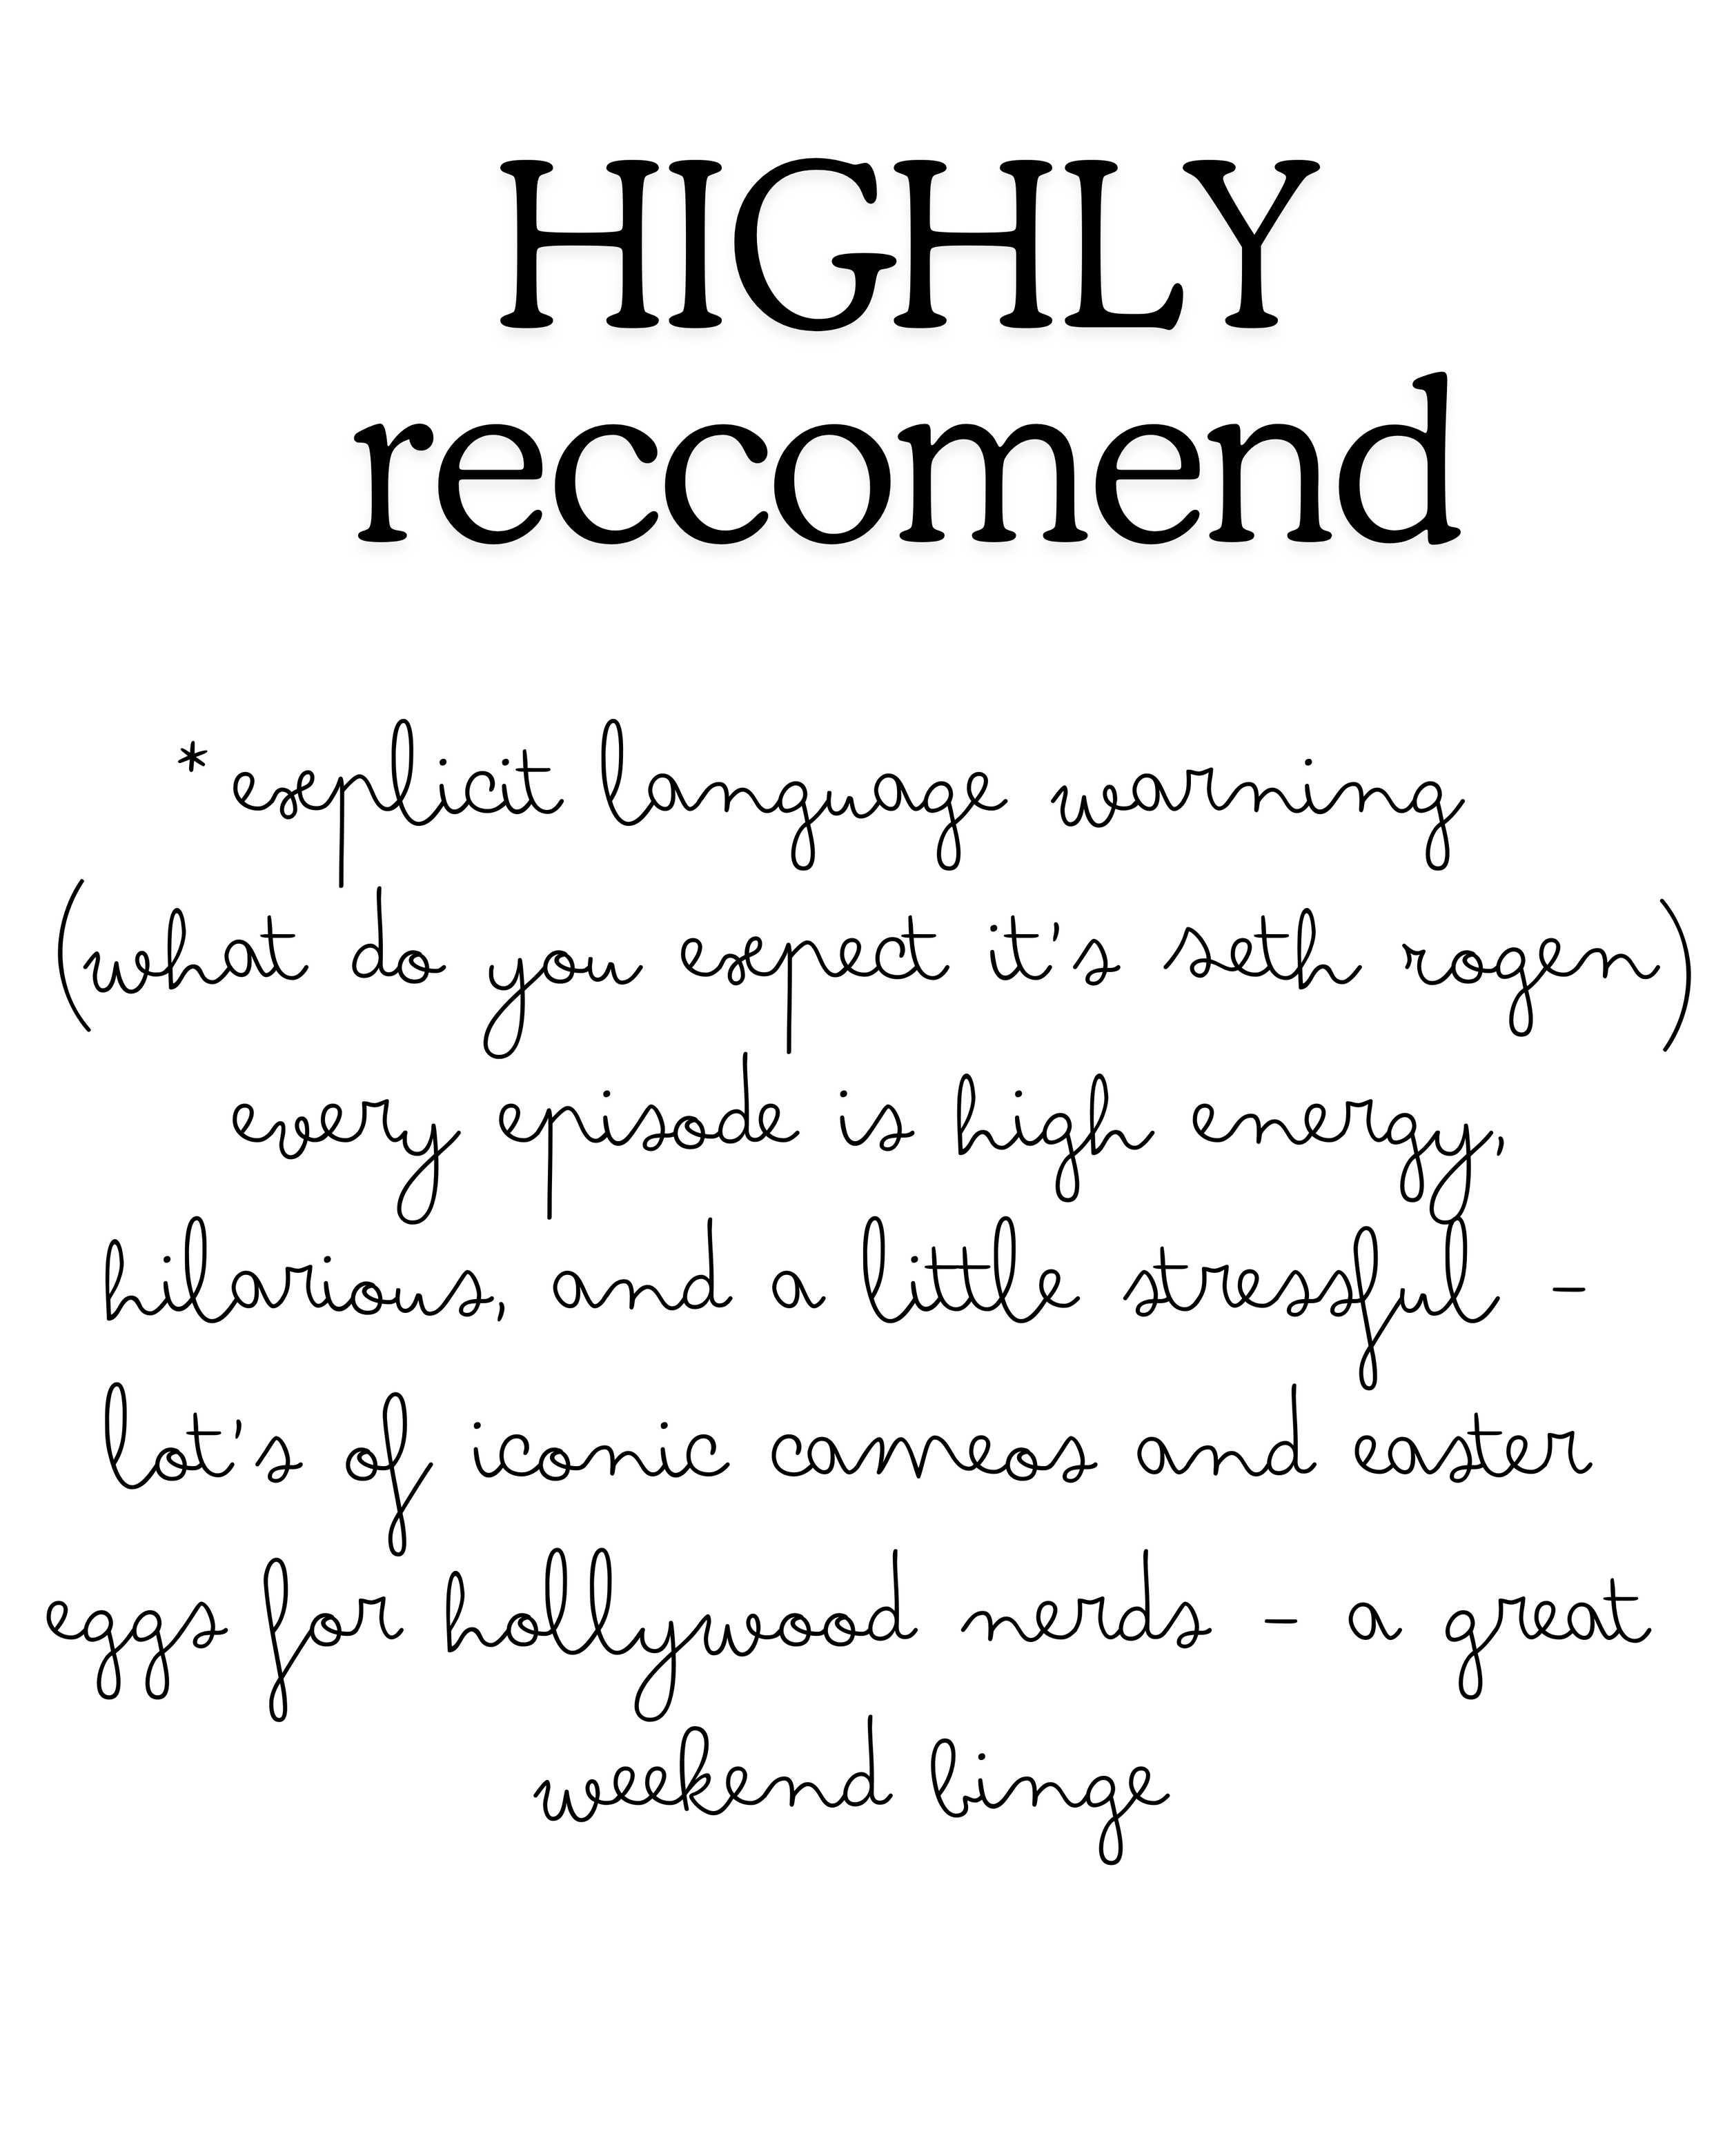 HIGHLY
reccomend
*explicit language warning
(what do you expect it's seth rogen)
every episode is high energy,
hilarious, and a little stressful -
lot's of iconic cameos and easter
eggs for hollywood nerds - a great
weekend binge